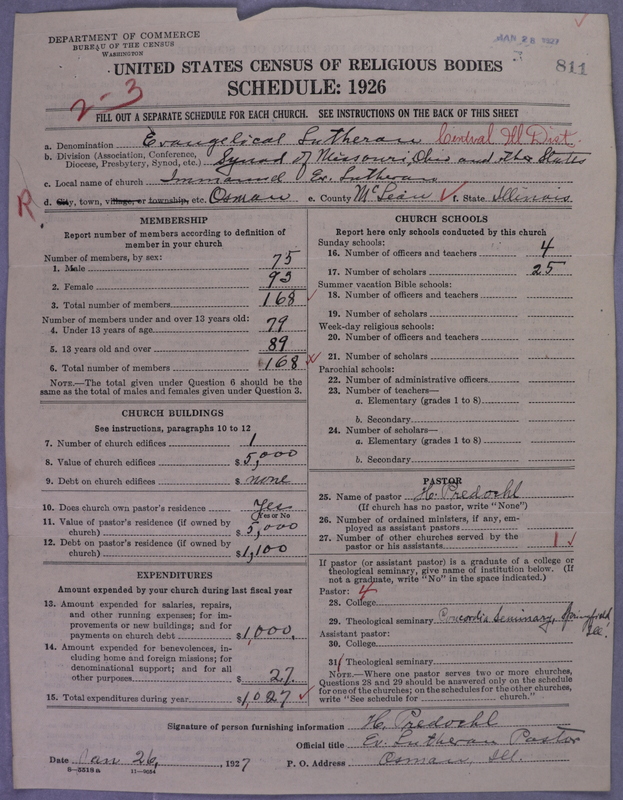 DEPARTMENT OF COMMERCE
BUREAU OF THE CENSUS
WASHINGTON
JAN 28 1927
811
UNITED STATES CENSUS OF RELIGIOUS BODIES
SCHEDULE: 1926
2-3
FILL OUT A SEPARATE SCHEDULE FOR EACH CHURCH. SEE INSTRUCTIONS ON THE BACK OF THIS SHEET
a. Denomination Evangelical Lutheran Central Ill Dist.
b. Division (Association, Conference, Diocese, Presbytery, Synod, etc.) Synod of Missouri, Ohio and other States
c. Local name of church Immanuel Ev. Lutheran
R
d. City, town, village, or township, etc. Osman e. County McLean f. State Illinois
MEMBERSHIP
Report number of members according to definition of
member in your church
Number of members, by sex:
1. Male 75
2. Female 93
3. Total number of members 168
Number of members under and over 13 years old:
4. Under 13 years of age 79
5. 13 years old and over 89
6. Total number of members 168
NOTE.—The total given under Question 6 should be the
same as the total of males and females given under Question 3.
CHURCH BUILDINGS
See instructions, paragraphs 10 to 12
7. Number of church edifices 1
8. Value of church edifices $5,000
9. Debt on church edifices $ none
10. Does church own pastor's residence Yes
(Yes or No)
11. Value of pastor's residence (if owned by
church) $5,000
12. Debt on pastor's residence (if owned by
church) $1,100
EXPENDITURES
Amount expended by your church during last fiscal year
13. Amount expended for salaries, repairs,
and other running expenses; for im-
provements or new buildings; and for
payments on church debt $1,000.
14. Amount expended for benevolences, in-
cluding home and foreign missions; for
denominational support; and for all
other purposes $ 27
15. Total expenditures during year $1,027
CHURCH SCHOOLS
Report here only schools conducted by this church
Sunday schools:
16. Number of officers and teachers 4
17. Number of scholars 25
Summer vacation Bible schools:
18. Number of officers and teachers
19. Number of scholars
Week-day religious schools:
20. Number of officers and teachers
21. Number of scholars
Parochial schools:
22. Number of administrative officers
23. Number of teachers—
a. Elementary (grades 1 to 8)
b. Secondary
24. Number of scholars—
a. Elementary (grades 1 to 8)
b. Secondary
PASTOR
25. Name of pastor H. Predoehl
(If church has no pastor, write "None")
26. Number of ordained ministers, if any, em-
ployed as assistant pastors
27. Number of other churches served by the
pastor or his assistants 1
If pastor (or assistant pastor) is a graduate of a college or
theological seminary, give name of institution below. (If
not a graduate, write "No" in the space indicated.)
Pastor: 4
28. College
29. Theological seminary Concordia Seminary, Springfield Ill.
Assistant pastor:
30. College
31. Theological seminary
NOTE.—Where one pastor serves two or more churches,
Questions 28 and 29 should be answered only on the schedule
for one of the churches; on the schedules for the other churches,
write "See schedule for church."
Signature of person furnishing information H. Predoehl
Official title Ev. Lutheran Pastor
Date Jan 26, 1927 P. O. Address Osman, Ill.
8—5519 a 11—9054